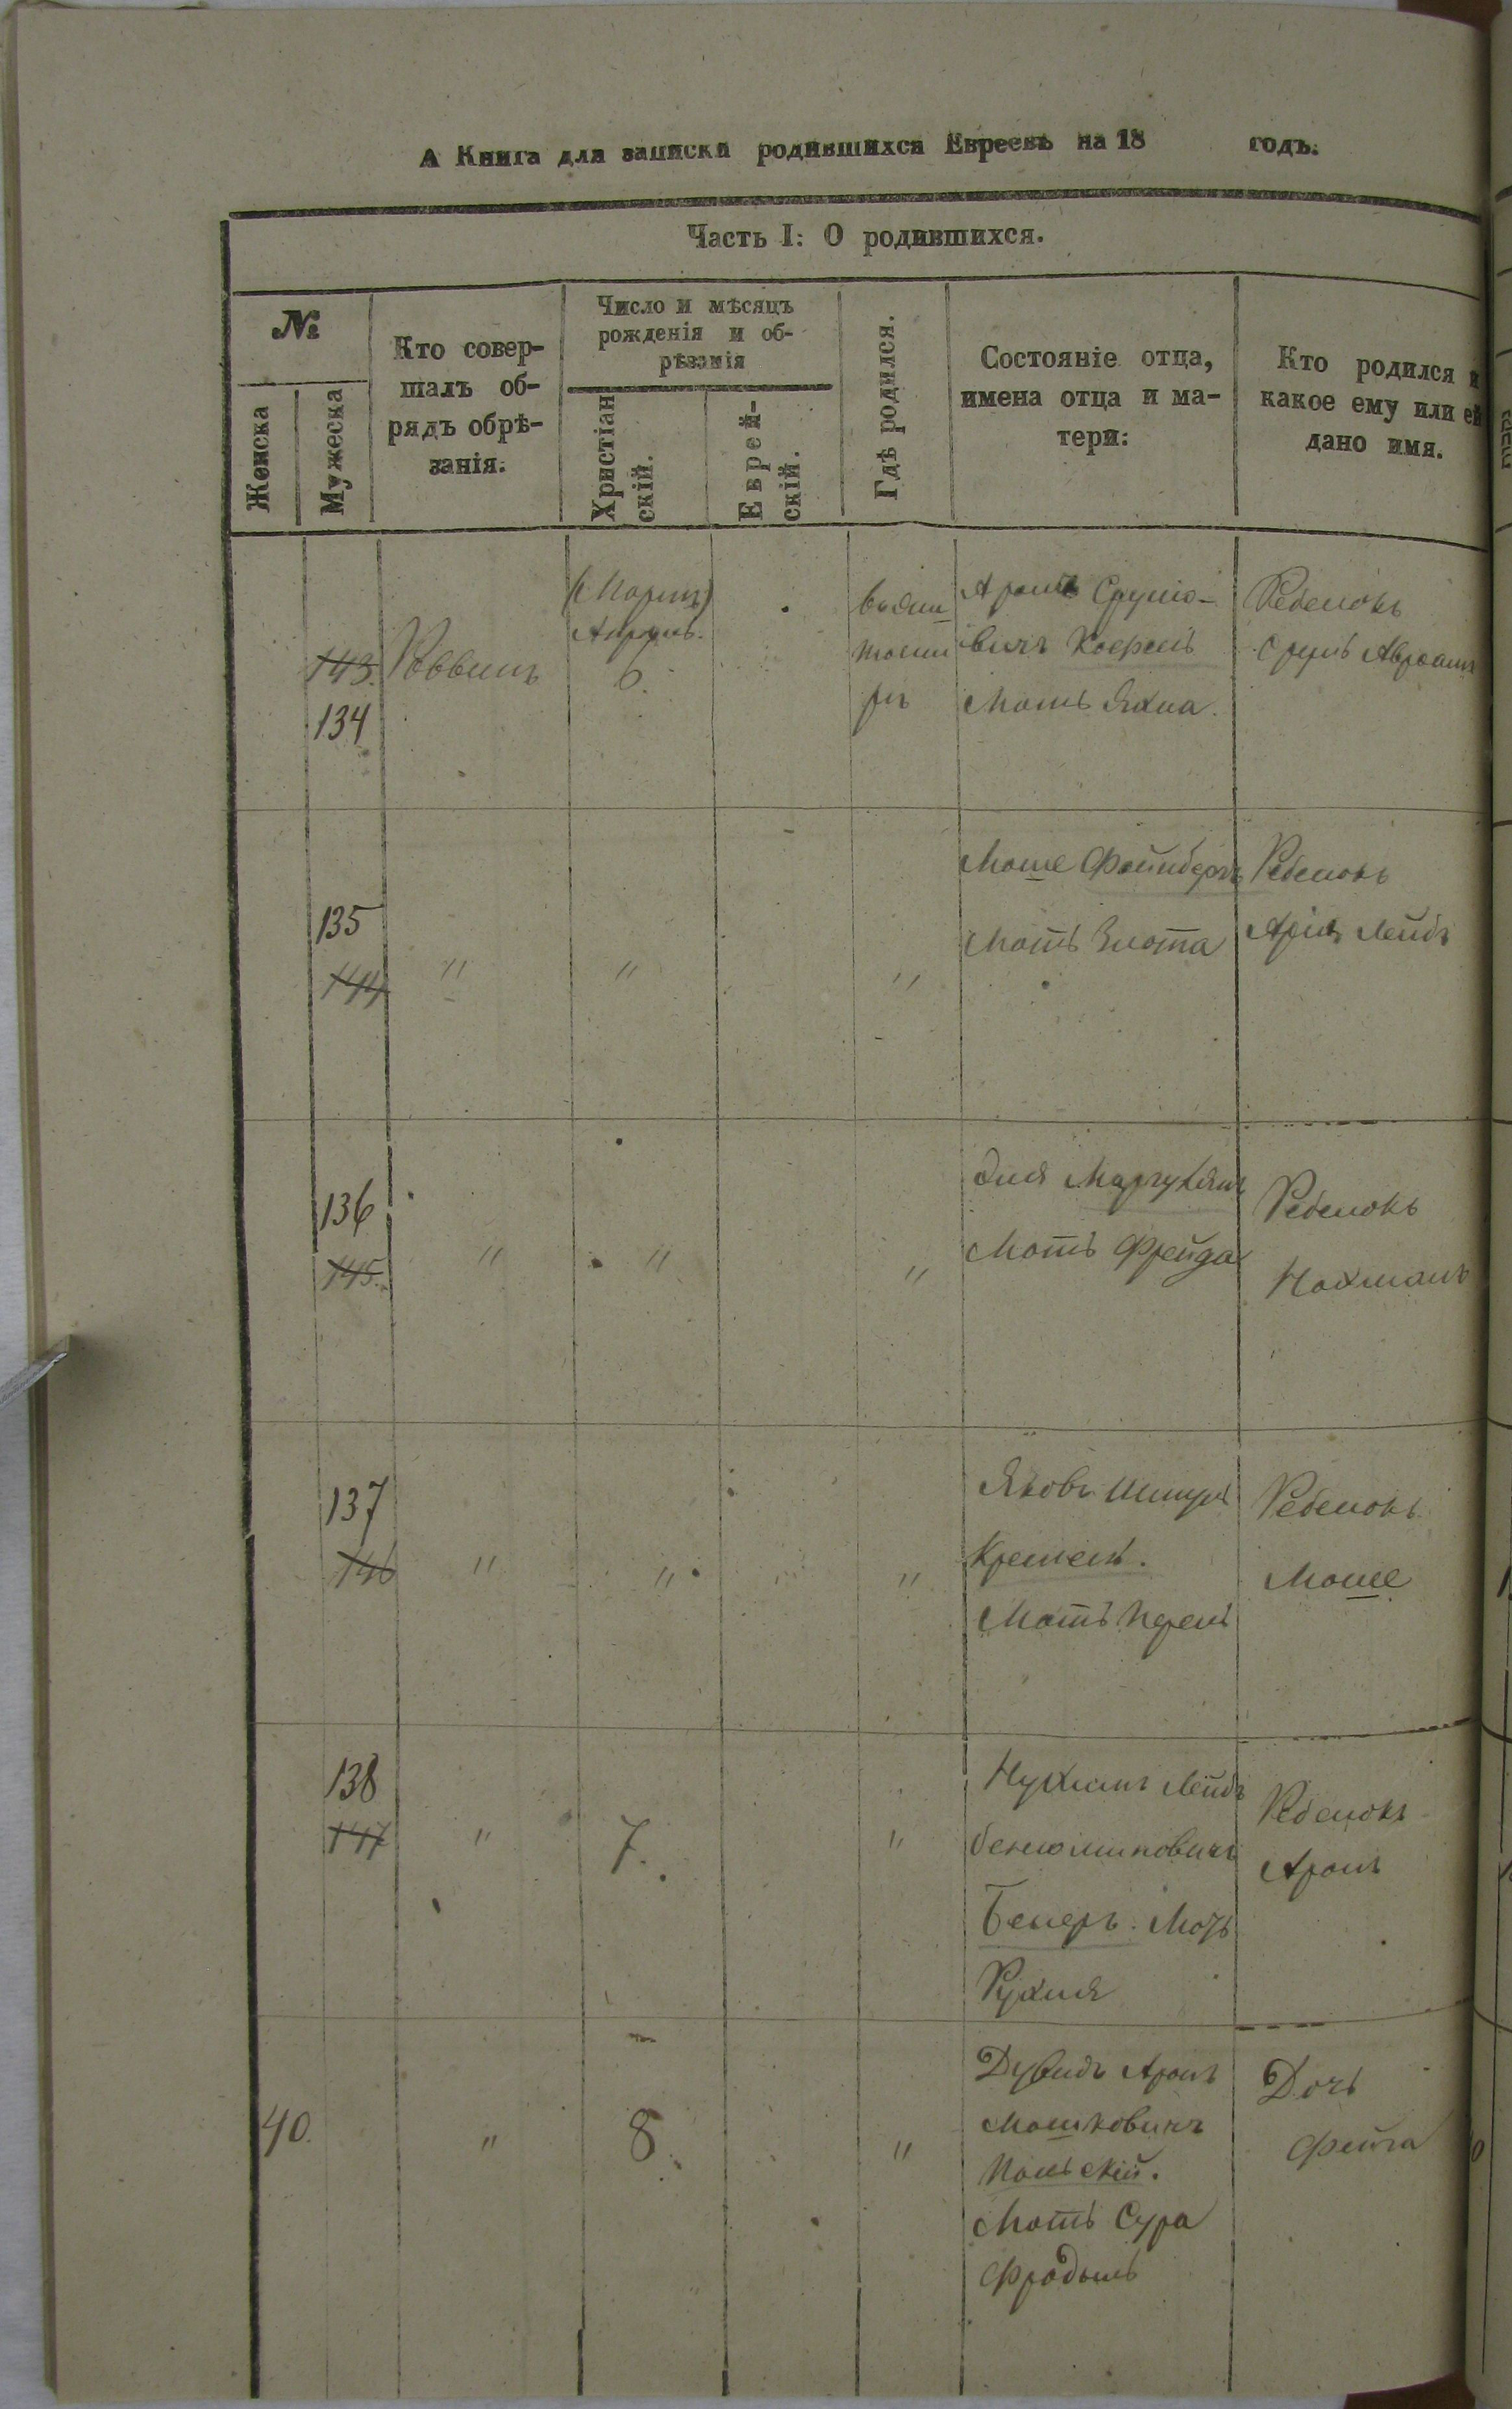 А Книга для записки родившихся Евреевъ на 18 годъ.
Часть I: О родившихся.
№
Женска
Мужеска
Кто совер-
шалъ об-
рядъ обрѣ-
занія.
Число и мѣсяцъ
рожденія и об-
рѣзанія
Христіан
скій.
Еврей-
скій.
Гдѣ родился.
Состояніе отца,
имена отца и ма-
тери:
Кто родился и
какое ему или ей
дано имя.
143.
134
Раввинъ
(Мартъ)
Апрель.
6.
Аронъ Сруліо-
вичъ
Мать Яхна.
Ребенокъ
Сруль Авраамъ
135
144
"
"
"
Моше Файнбергъ
Мать Злота
Ребенокъ
Арія Лейбъ
136
145.
"
"
"
Эля
Мать Фрейда
Ребенокъ
Нахманъ
137
146
"
"
"
Яковъ Шмуль
Кременъ.
Мать Перель
Ребенокъ
Моше
138
147
"
7.
"
Нухимъ Лейбъ
Беніоминовичъ
Бекеръ. Мать
Рухля
Ребенокъ
Аронъ
40.
"
8.
"
Дувидъ Аронъ
Мошковичъ
Польскій.
Мать Сура
Фрадыль
Дочь
Фейга